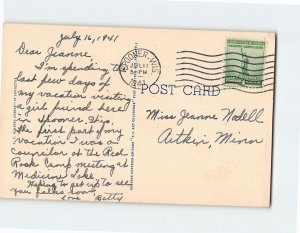 July 16, 1941
Dear Jeanne,
I'm spending the
last few days of
my vacation visiting
a girl friend here
in Spooner, Wis.
The first part of my
vacation I was a
counselor at the Red
Rock Camp meeting at
Medicine Lake.
Hoping to get up to see
your folks soon.
Love Betty
SPOONER, WIS.
JUL 17
PM
1941
POST CARD
Miss Jeanne Nodell
Aitkin, Minn